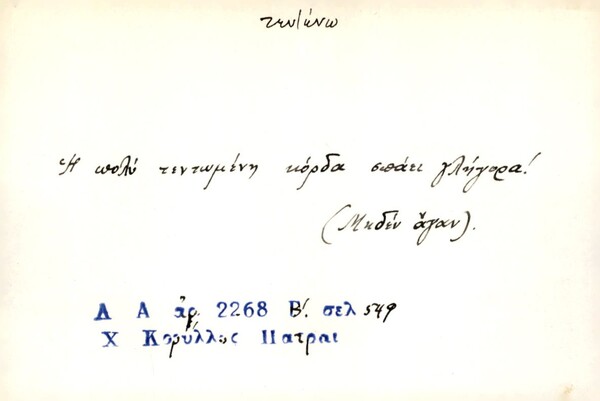 τεντώνω
Ἡ πολύ τεντωμένη κόρδα σπάει γλήγορα!
(Μηδέν ἄγαν).
Λ Α ἀρ. 2268 Β'. σελ 549
Χ Κορύλλος Πατραι